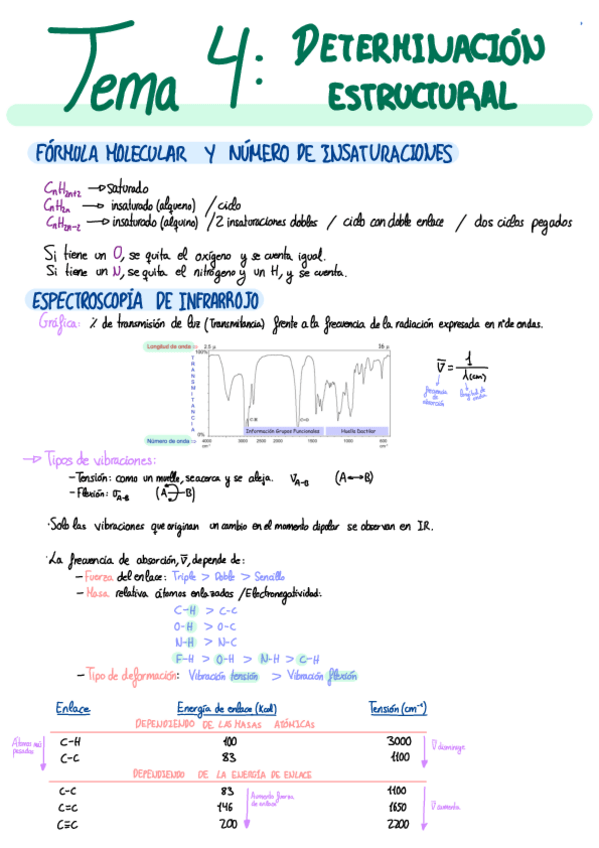 Tema 4: DETERMINACIÓN
ESTRUCTURAL
FÓRMULA MOLECULAR Y NÚMERO DE INSATURACIONES
CnH2n+2 → Saturado
CnH2n → insaturado (alqueno) / ciclo
CnH2n-2 → insaturado (alquino) / 2 insaturaciones dobles / ciclo con doble enlace / dos ciclos pegados
Si tiene un O, se quita el oxígeno y se cuenta igual.
Si tiene un N, se quita el nitrógeno y un H, y se cuenta.
ESPECTROSCOPÍA DE INFRARROJO
Gráfica: % de transmisión de luz (Transmitancia) frente a la frecuencia de la radiación expresada en nº de ondas.
Longitud de onda 2.5 μ 16 μ
100%
TRANSMITANCIA
0%
C-H C=O
Información Grupos Funcionales Huella Dactilar
Número de onda 4000 3000 2500 2000 1500 1000 500
cm⁻¹ cm⁻¹
ν̄ = 1
λ(cm)
frecuencia de absorción
longitud de onda
→ Tipos de vibraciones:
- Tensión: como un muelle, se acerca y se aleja. νA-B (A↔B)
- Flexión: σA-B (A B)
· Solo las vibraciones que originan un cambio en el momento dipolar se observan en IR.
· La frecuencia de absorción, ν̄, depende de:
- Fuerza del enlace: Triple > Doble > Sencillo
- Masa relativa átomos enlazados / Electronegatividad:
C-H > C-C
O-H > O-C
N-H > N-C
F-H > O-H > N-H > C-H
- Tipo de deformación: Vibración tensión > Vibración flexión
Enlace Energía de enlace (Kcal) Tensión (cm⁻¹)
DEPENDIENDO DE LAS MASAS ATÓMICAS
Átomos más pesados
C-H 100 3000
C-C 83 1100
ν̄ disminuye
DEPENDIENDO DE LA ENERGÍA DE ENLACE
C-C 83 1100
C=C 146 1650
C≡C 200 2200
Aumenta fuerza de enlace
ν̄ aumenta